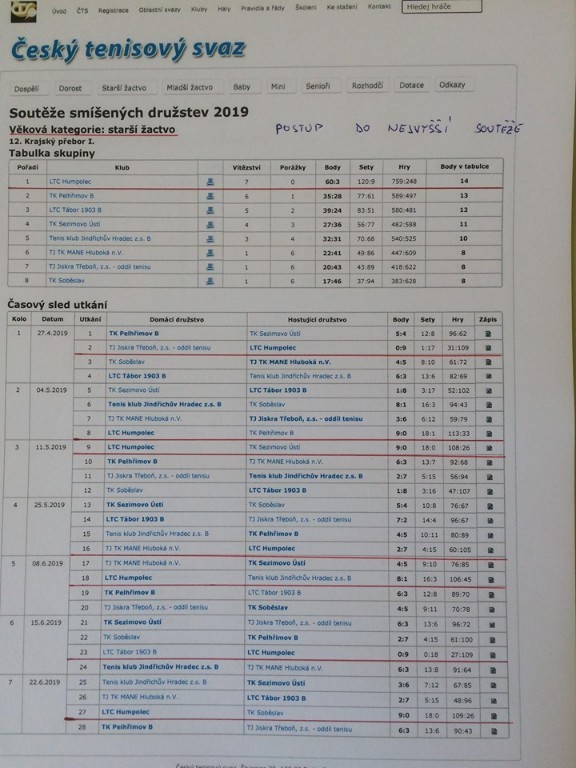 Úvod ČTS Registrace Oblastní svazy Kluby Haly Pravidla a řády Školení Ke stažení Kontakt Hledej hráče
Český tenisový svaz
Dospělí Dorost Starší žactvo Mladší žactvo Baby Mini Senioři Rozhodčí Dotace Odkazy
Soutěže smíšených družstev 2019
Věková kategorie: starší žactvo POSTUP DO NEJVYŠŠÍ SOUTĚŽE
12. Krajský přebor I.
Tabulka skupiny
Pořadí Klub Vítězství Porážky Body Sety Hry Body v tabulce
1 LTC Humpolec 7 0 60:3 120:9 759:248 14
2 TK Pelhřimov B 6 1 35:28 77:61 589:497 13
3 LTC Tábor 1903 B 5 2 39:24 83:51 580:481 12
4 TK Sezimovo Ústí 4 3 27:36 56:77 482:588 11
5 Tenis klub Jindřichův Hradec z.s. B 3 4 32:31 70:68 540:525 10
6 TJ TK MANE Hluboká n.V. 1 6 22:41 49:86 447:609 8
7 TJ Jiskra Třeboň, z.s. - oddíl tenisu 1 6 20:43 43:89 418:622 8
8 TK Soběslav 1 6 17:46 37:94 383:628 8
Časový sled utkání
Kolo Datum Utkání Domácí družstvo Hostující družstvo Body Sety Hry Zápis
1 27.4.2019 1 TK Pelhřimov B TK Sezimovo Ústí 5:4 12:8 96:62
2 TJ Jiskra Třeboň, z.s. - oddíl tenisu LTC Humpolec 0:9 1:17 31:109
3 TK Soběslav TJ TK MANE Hluboká n.V. 4:5 8:10 61:72
4 LTC Tábor 1903 B Tenis klub Jindřichův Hradec z.s. B 6:3 13:6 82:69
2 04.5.2019 5 TK Sezimovo Ústí LTC Tábor 1903 B 1:8 3:17 52:102
6 Tenis klub Jindřichův Hradec z.s. B TK Soběslav 8:1 16:3 94:43
7 TJ TK MANE Hluboká n.V. TJ Jiskra Třeboň, z.s. - oddíl tenisu 3:6 6:12 59:79
8 LTC Humpolec TK Pelhřimov B 9:0 18:1 113:33
3 11.5.2019 9 LTC Humpolec TK Sezimovo Ústí 9:0 18:0 108:26
10 TK Pelhřimov B TJ TK MANE Hluboká n.V. 6:3 13:7 92:68
11 TJ Jiskra Třeboň, z.s. - oddíl tenisu Tenis klub Jindřichův Hradec z.s. B 2:7 5:15 56:94
12 TK Soběslav LTC Tábor 1903 B 1:8 3:16 47:107
4 25.5.2019 13 TK Sezimovo Ústí TK Soběslav 5:4 10:8 76:67
14 LTC Tábor 1903 B TJ Jiskra Třeboň, z.s. - oddíl tenisu 7:2 14:4 96:67
15 Tenis klub Jindřichův Hradec z.s. B TK Pelhřimov B 4:5 10:11 80:89
16 TJ TK MANE Hluboká n.V. LTC Humpolec 2:7 4:15 60:105
5 08.6.2019 17 TJ TK MANE Hluboká n.V. TK Sezimovo Ústí 4:5 9:10 76:85
18 LTC Humpolec Tenis klub Jindřichův Hradec z.s. B 8:1 16:3 106:45
19 TK Pelhřimov B LTC Tábor 1903 B 6:3 12:8 89:70
20 TJ Jiskra Třeboň, z.s. - oddíl tenisu TK Soběslav 4:5 9:11 70:78
6 15.6.2019 21 TK Sezimovo Ústí TJ Jiskra Třeboň, z.s. - oddíl tenisu 6:3 13:6 96:72
22 TK Soběslav TK Pelhřimov B 2:7 4:15 61:100
23 LTC Tábor 1903 B LTC Humpolec 0:9 0:18 27:109
24 Tenis klub Jindřichův Hradec z.s. B TJ TK MANE Hluboká n.V. 6:3 13:8 91:64
7 22.6.2019 25 Tenis klub Jindřichův Hradec z.s. B TK Sezimovo Ústí 3:6 7:12 67:85
26 TJ TK MANE Hluboká n.V. LTC Tábor 1903 B 2:7 5:15 48:96
27 LTC Humpolec TK Soběslav 9:0 18:0 109:26
28 TK Pelhřimov B TJ Jiskra Třeboň, z.s. - oddíl tenisu 6:3 13:6 90:43